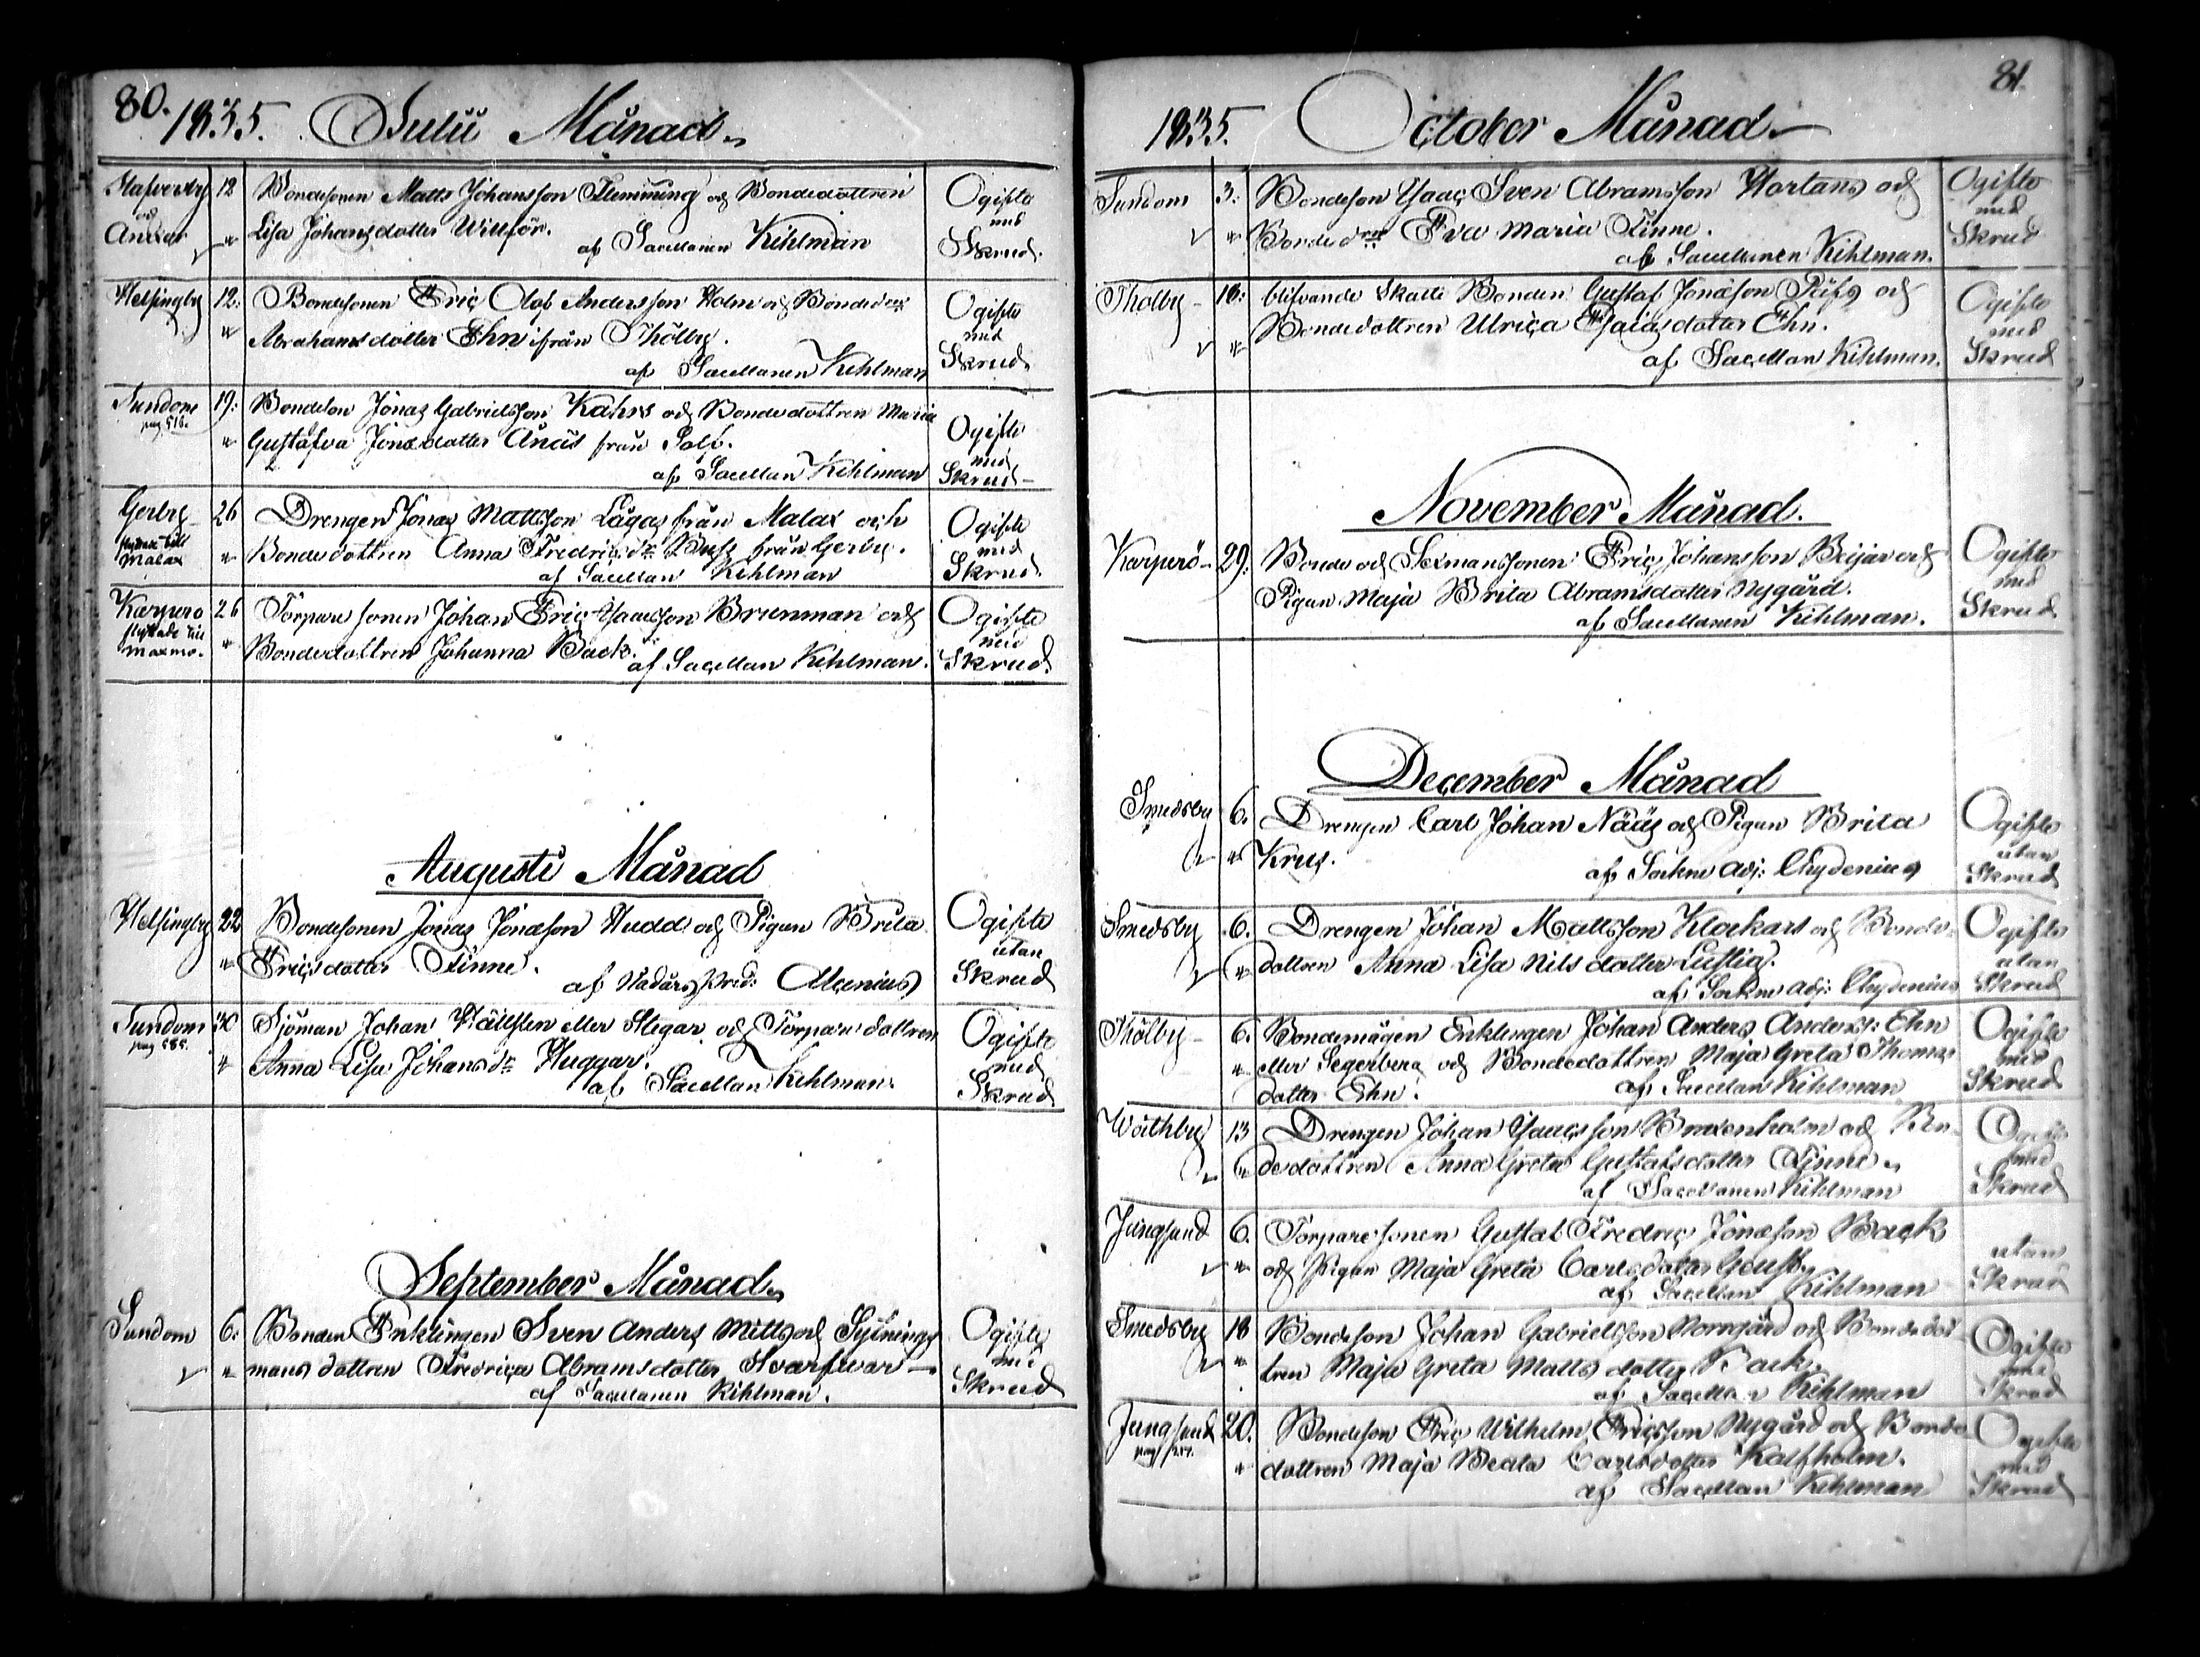 80.
1835. Julii Månad.
Stafversby 12 Bondesonen Matts Johansson Flemming och Bondedottren
och Anixor Lisa Johansdotter Willför.
af Sacellanen Kihlman
Ogifte
med
Skrud.
Helsingby 12: Bondesonen Eric Olof Andersson Holm och Bonded:
Abrahamsdotter Ehn ifrån Thölby.
af Sacellanen Kihlman
Ogifte
med
Skrud.
Sundom 19: Bondeson Jonas Gabrielsson Kahrs och Bondedottren Maria
pag 518. Gustafva Jonasdotter Ånäs från Solf.
af Sacellan Kihlman
Ogifte
med
Skrud
Gerby 26 Drengen Jonas Mattsson Lågas från Malax och
till Malax Bondedottren Anna Fredrica d:r Buss från Gerby.
af Sacellan Kihlman
Ogifte
med
Skrud.
Karperö 26 Torpare sonen Johan Eric Isaacsson Brunman och
flyttade till Maxmo. Bondedottren Johanna Back.
af Sacellan Kihlman.
Ogifte
med
Skrud.
Augusti Månad
Helsingby 22 Bondesonen Jonas Jonasson Hudd och Pigan Brita
Ericsdotter Finne.
af Nådårs Pred: Alcenius
Ogifte
utan
Skrud
Sundom 30 Sjöman Johan Hällsten eller Stegar och Torpare dottren
pag 585. Anna Lisa Johansd:r Huggar.
af Sacellan Kihlman.
Ogifte
med
Skrud
September Månad
Sundom 6. Bonden Enklingen Sven Anders Mitts och Sytnings
mans dottren Fredrica Abramsdotter Svarfvar
af Sacellanen Kihlman.
Ogifte
med
Skrud
81.
1835. October Månad
Sundom 3. Bondeson Isaac Sven Abramsson Hortans och
Bonded:ren Eva Maria Finne.
af Sacellanen Kihlman.
Ogifte
med
Skrud
Thölby 16: blifvande Skatte Bonden Gustaf Jonasson och
Bondedottren Ulrica Esaiasdotter Ehn.
af Sacellan Kihlman.
Ogifte
med
Skrud
November Månad.
Karperö 29: Bonde och Sexmanssonen Eric Johansson Beijar och
Pigan Maja Brita Abramsdotter Nygård.
af Sacellanen Kihlman.
Ogifte
med
Skrud
December Månad
Smedsby 6. Drengen Carl Johan Nääs och Pigan Brita
Krus.
af Sockne Adj: Chydenius
Ogifte
utan
Skrud
Smedsby 6. Drengen Johan Mattsson Klockars och Bonde-
dottren Anna Lisa Nilsdotter Lustig.
af Sockne Adj: Chydenius
Ogifte
utan
Skrud
Thölby 6. Bondemågen Enklingen Johan Anders Anderss: Ehn
eller Segerberg och Bondedottren Maja Greta Thomas
dotter Ehn.
af Sacellan Kihlman
Ogifte
med
Skrud
Wäthby 13 Drengen Johan Isaacsson Braxenholm och Bon-
dedottren Anna Greta Gustafsdotter Finne.
af Sacellanen Kihlman
Ogifte
med
Skrud
Jungsund 6. Torparesonen Gustaf Fredric Jonasson Back
och Pigan Maja Greta Carlsdotter Gäust.
af Sacellan Kihlman
utan
Skrud
Smedsby 18 Bondeson Johan Gabrielsson Norrgård och Bondedot-
tren Maja Greta Mattsdotter Back.
af Sacellan Kihlman
Ogifte
med
Skrud
Jungsund 20. Bondeson Eric Wilhelm Ericsson Nygård och Bonde
dottren Maja Beata Carlsdotter Kalfholm.
af Sacellan Kihlman
Ogifte
med
Skrud